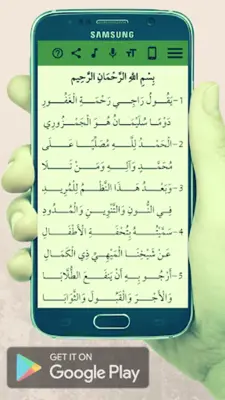 SAMSUNG
بِسْمِ اللهِ الرَّحْمَانِ الرَّحِيمِ
1– يَقُولُ رَاجِي رَحْمَةِ الْغَفُورِ
دَوْمًا سُلَيْمَانُ هُوَ الْجَمْزُورِي
2– الْحَمْدُ لِلَّهِ مُصَلِّيًا عَلَى
مُحَمَّدٍ وَآلِهِ وَمَنْ تَلَا
3– وَبَعْدُ هَذَا النَّظْمُ لِلْمُرِيدِ
فِي النُّونِ وَالتَّنْوِينِ وَالْمُدُودِ
4– سَمَّيْتُهُ بِتُحْفَةِ الْأَطْفَالِ
عَنْ شَيْخِنَا الْمِيهِيِّ ذِي الْكَمَالِ
5– أَرْجُو بِهِ أَنْ يَنْفَعَ الطُّلَّابَا
وَالْأَجْرَ وَالْقَبُولَ وَالثَّوَابَا
GET IT ON
Google Play